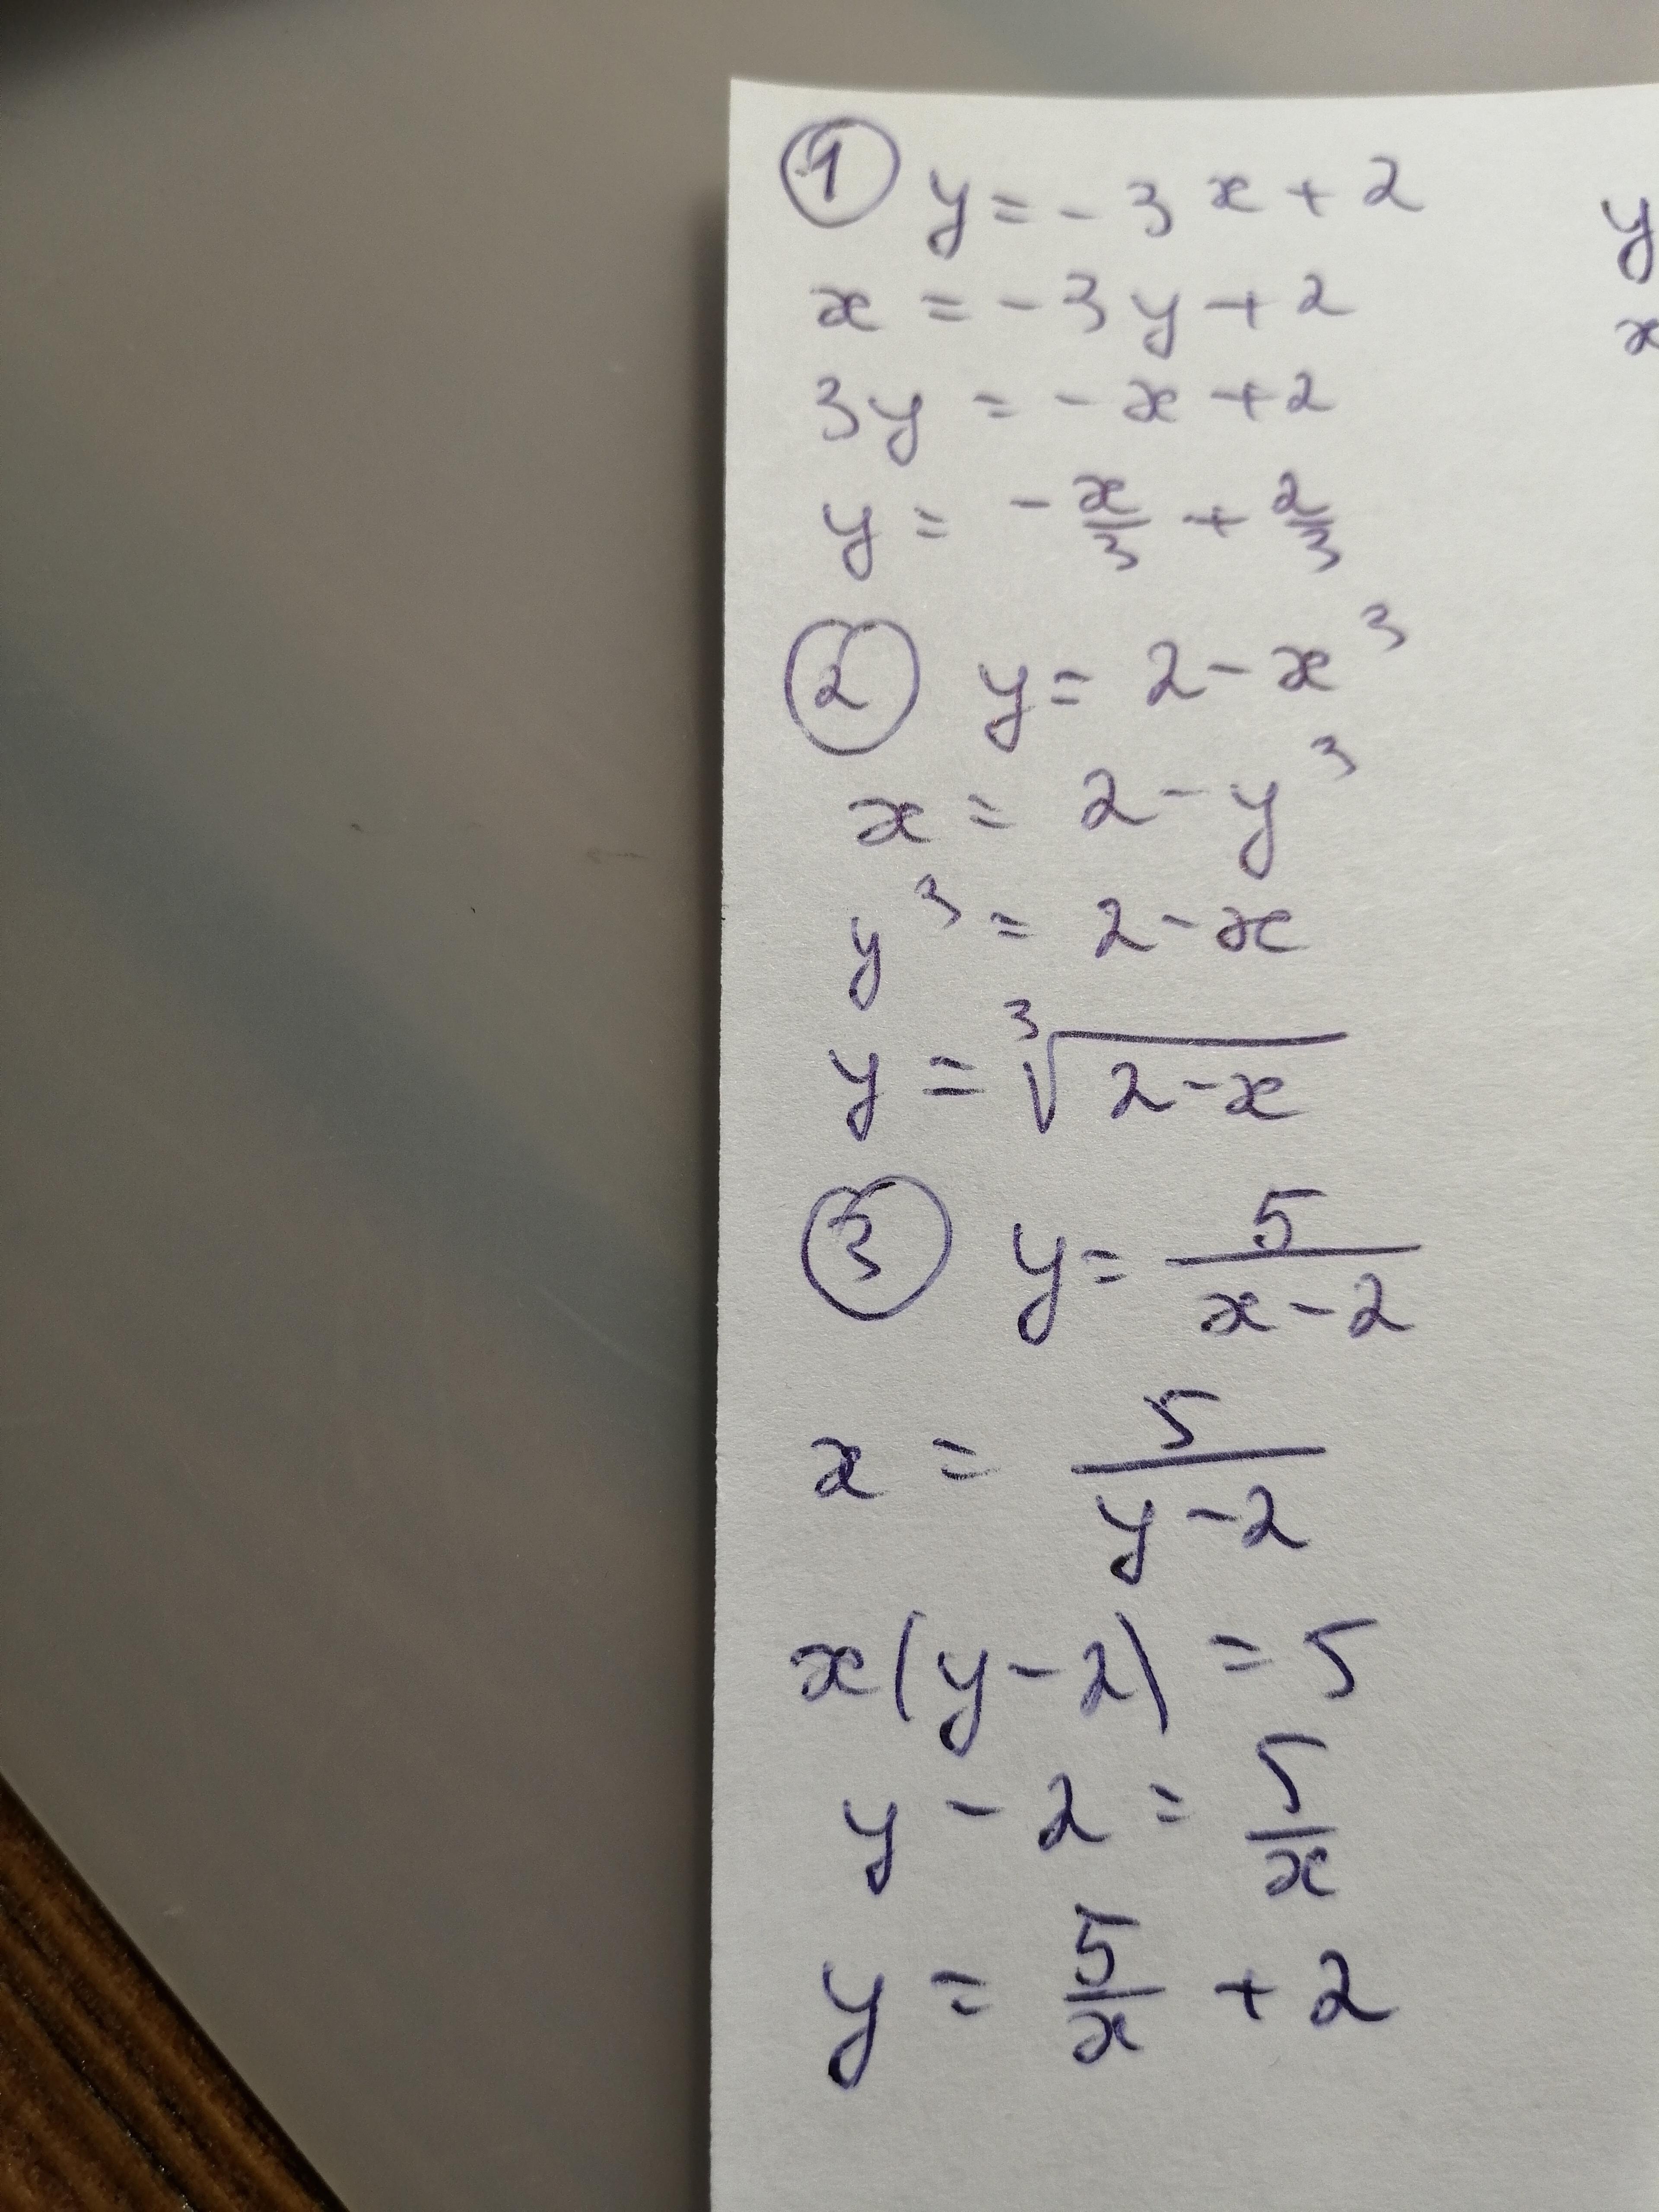 ① y = - 3x + 2
x = - 3y + 2
3y = - x + 2
y = - x/3 + 2/3
② y = 2 - x³
x = 2 - y³
y³ = 2 - x
y = ³√(2 - x)
③ y = 5/(x - 2)
x = 5/(y - 2)
x(y - 2) = 5
y - 2 = 5/x
y = 5/x + 2
y
x